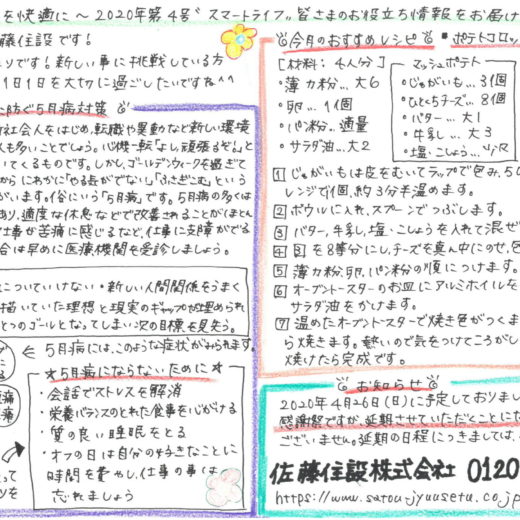 を快適に〜2020年第4号〝スマートライフ〟皆さまのお役立ち情報をお届け
藤住設です!
りです!新しい事に挑戦している方
1日1日を大切に過ごしたいですね^^
に防ぐ5月病対策
社会人をはじめ、転職や異動など新しい環境
人も多いことでしょう。心機一転「よし、頑張るぞ」と
いてくるものです。しかし、ゴールデンウィークを過ぎて
からにわかに「やる気がでない」「ふさぎこむ」という
がいます。俗にいう「5月病」です。5月病の多くは
あり、適度な休息などで改善されることがほとん
仕事が苦痛に感じるなど、仕事に支障がでる
合は早めに医療機関を受診しましょう。
についていけない・新しい人間関係をうまく
描いていた理想と現実のギャップが埋められ
とつのゴールとなってしまい次の目標を見失う。
← 5月病には、このような症状がみられます。
☆5月病にならないために☆
・会話でストレスを解消
・栄養バランスのとれた食事をいがける
・質の良い睡眠をとる
・オフの日は自分の好きなことに
時間を費やし、仕事の事は
忘れましょう
今月のおすすめレシピ ・ポテトコロッ
[材料:4人分]
・薄力粉…大6
・卵…1個
・パン粉…適量
・サラダ油…大2
マッシュポテト
・じゃがいも…3個
・ひとくちチーズ…8個
・バター…大1
・牛乳…大3
・塩・こしょう…少々
1 じゃがいもは皮をむいてラップで包み、5
レンジで1個、約3分半温めます。
2 ボウルに入れ、スプーンでつぶします。
3 バター、牛乳、塩・こしょうを入れて混ぜ
4 3を8等分にし、チーズを真ん中にのせ、包
5 薄力粉、卵、パン粉の順につけます。
6 オーブントースターのお皿にアルミホイルを
サラダ油をかけます。
7 温めたオーブントースターで焼き色がつくま
ら焼きます。熱いので気をつけてころがし
焼けたら完成です。
お知らせ
2020年4月26日(日)に予定しておりまし
感謝祭ですが、延期させていただくことにな
ございません。延期の日程につきましては、
佐藤住設株式会社 0120
https://www.satou-jyuusetu.co.jp